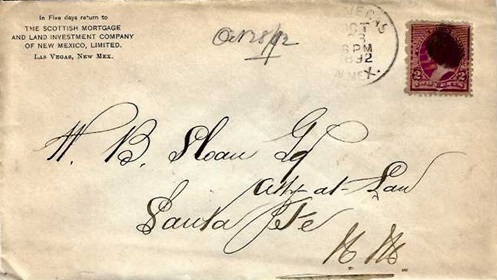 In Five days return to
THE SCOTTISH MORTGAGE
AND LAND INVESTMENT COMPANY
OF NEW MEXICO, LIMITED.
LAS VEGAS, NEW MEX.
Oct 28/92
VEGAS
6 PM
1892
N. MEX.
2 2
W. B. Sloan Esq
Atty-at-Law
Santa Fe
N. M.